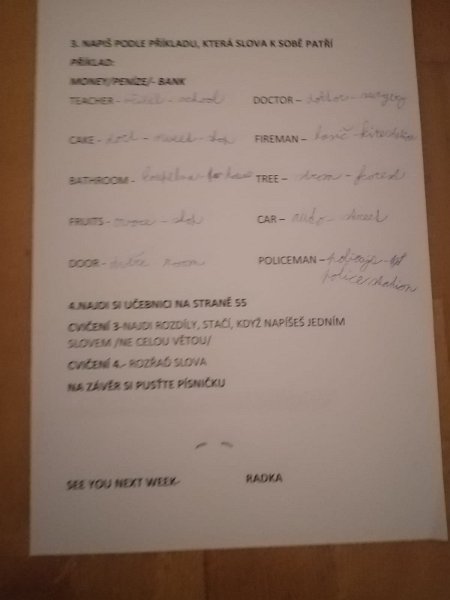 3. NAPIŠ PODLE PŘÍKLADU, KTERÁ SLOVA K SOBĚ PATŘÍ
PŘÍKLAD:
MONEY/PENÍZE/- BANK
TEACHER - učitel - school
DOCTOR – doktor - surgery
CAKE - dort - sweet - shop
FIREMAN – hasič -
BATHROOM - koupelna - house
TREE – strom - forest
FRUITS - ovoce - shop
CAR – auto - street
DOOR - dveře room
POLICEMAN – policajt -
police station
4.NAJDI SI UČEBNICI NA STRANĚ 55
CVIČENÍ 3-NAJDI ROZDÍLY, STAČÍ, KDYŽ NAPÍŠEŠ JEDNÍM
SLOVEM /NE CELOU VĚTOU/
CVIČENÍ 4.- ROZŘAĎ SLOVA
NA ZÁVĚR SI PUSŤTE PÍSNIČKU
SEE YOU NEXT WEEK- RADKA